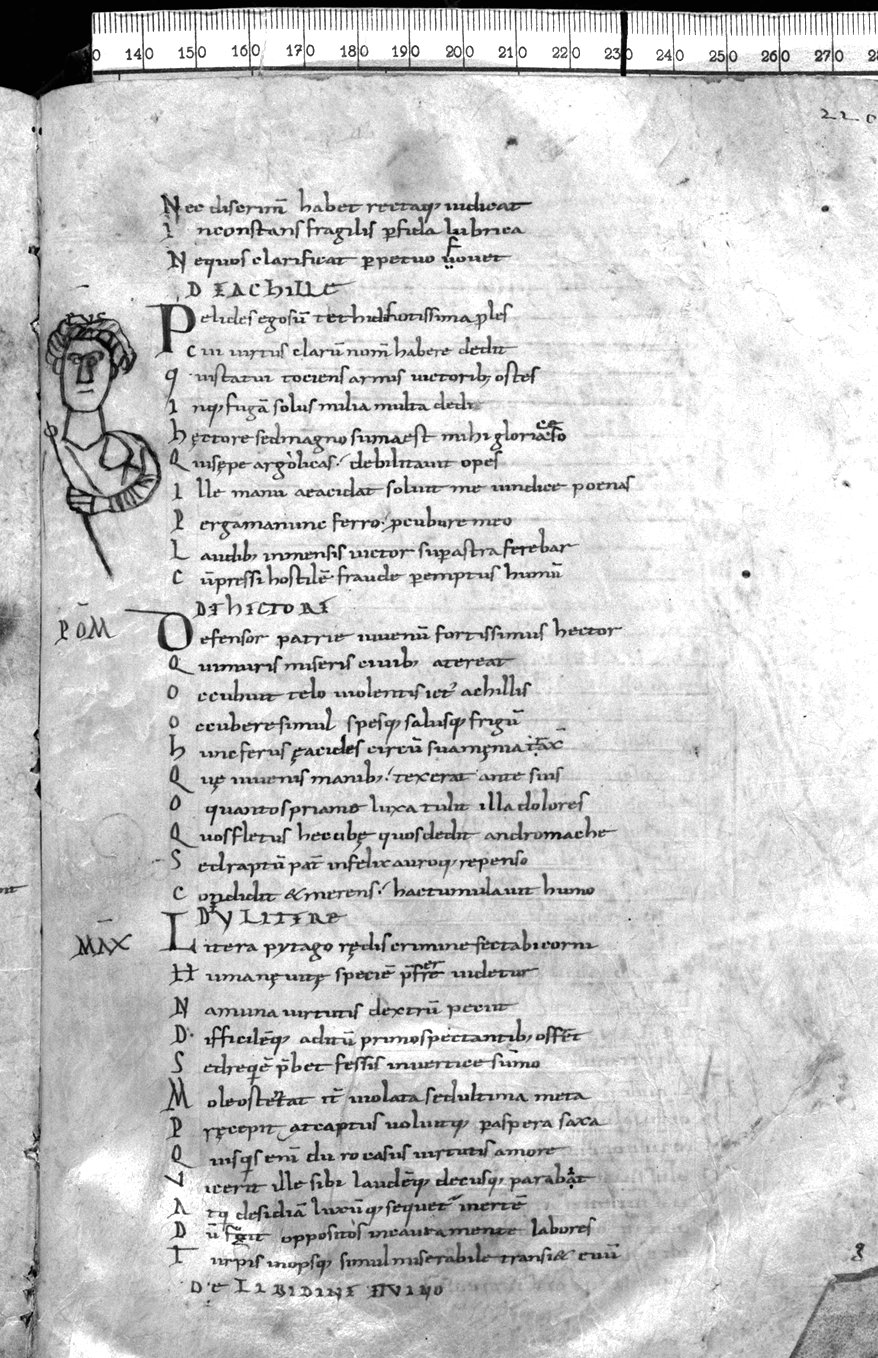 130 140 150 160 170 180 190 200 210 220 230 240 250 260 270 28
220
Nec discrim̄ habet rectaq; iudicat
Inconstans fragilis ꝑfida lubrica
Nequos clarificat ꝑpetuo fouet
DE ACHILLE
Pelides ego sū tethidis fortissima ꝓles
Cui uirtus clarū nom̄ habere dedit
Qui straui tociens armis uictorib; ostes
Inq; fugā solus milia multa dedi
hęctore sed magno suma est mihi gloria ceso
Qui sępe argolicas debilitauit opes
Ille manu aeacidat soluit me uindice poenas
Pergama nunc ferro ꝓcubure meo
Laudib; inmensis uictor sup astra ferebar
Cū pressi hostilē fraude ꝑemptus humū
DE HECTORE
POM̄
Defensor patrie iuuenū fortissimus hector
Qui muris miseris ciuib; alter erat
Occubuit telo uiolenti uict' achillis
Occubere simul spesq; salusq; frigū
hunc ferus ęacides circū sua męnia tāx
Quę iuuenis manib; texerat ante suis
O quantos priamo luxa tulit illa dolores
Quos fletus hecubę quos dedit andromache
Sed raptū pat̄ infelix auroq; repenso
Condidit & merens hac tumulauit humo
D Y LITERE
MĀX
Litera pytagorę discrimine secta bicorni
Humanę uitę speciē p̄ferre uidetur
Nam uia uirtutis dextrū petit
Difficilēq; aditū primo spectantib; offert
Sed requiē p̄bet fessis in uertice sūmo
Mole ostentat it̄ uiolata sed ultima meta
Pręcepit at captus uoluitq; ꝑ aspera saxa
Quisqis eni du ro casus uirtutis amore
Vicerit ille sibi laudēq; decusq; parabit
Atq desidiā luxūq; sequet' inertē
Dū fugit oppositos incauta mente labores
Turpis inopsq; simul miserabile transi& euū
DE LIBIDINE & VINO